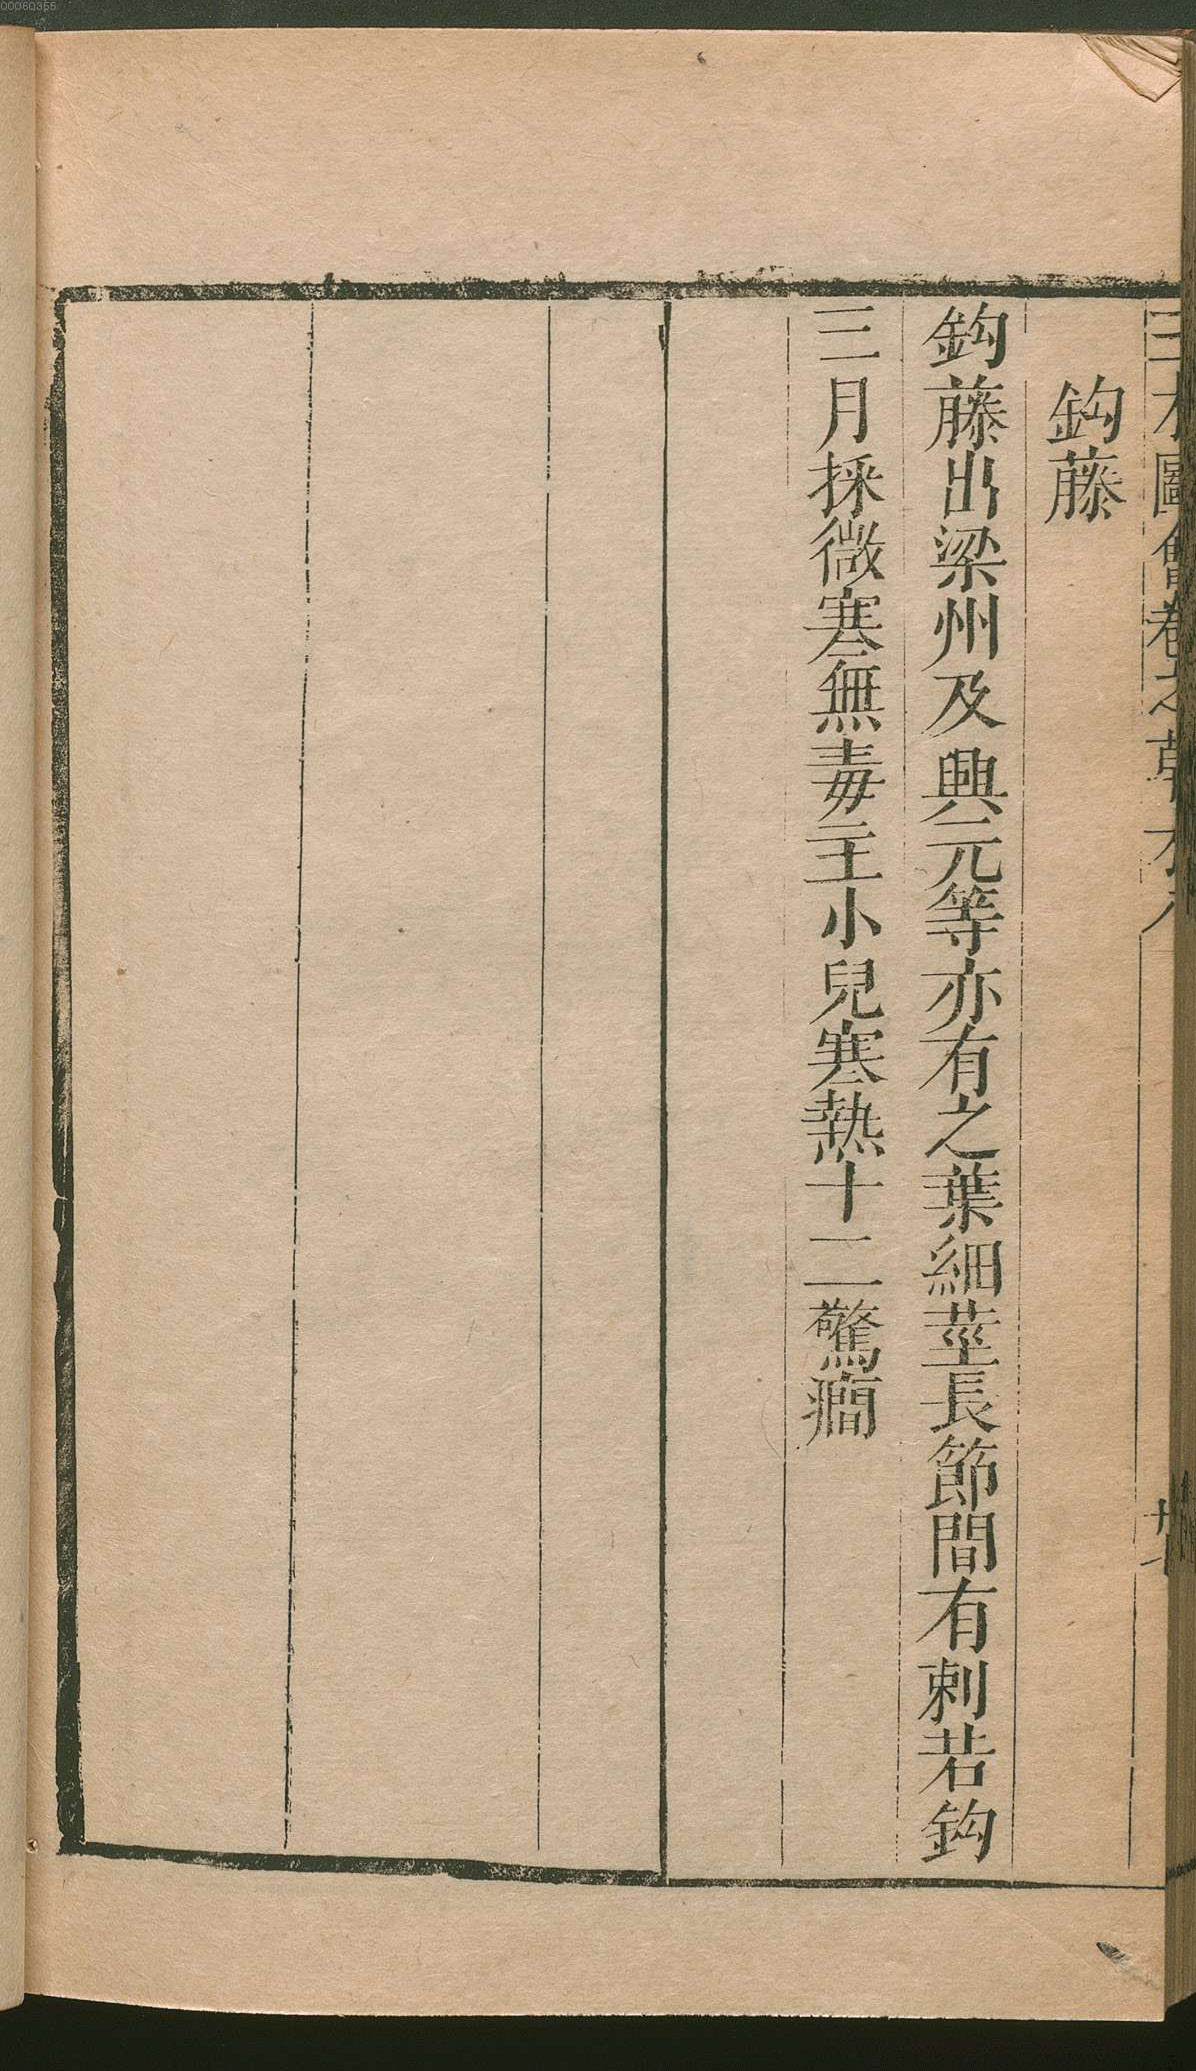 00060355
三才圖會卷之草木八
鈎藤
鈎藤出梁州及興元等亦有之葉細莖長節間有刺若鈎
三月採微寒無毒主小兒寒熱十二驚癎